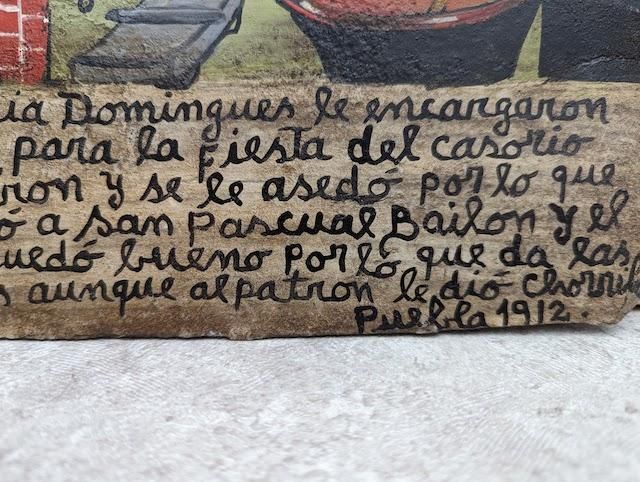 ia Domingues le encargaron
para la fiesta del casorio
ron y se le asedó por lo que
ó a san Pascual Bailon y el
uedó bueno por ló que da las
s aunque al patron le dió chorril
Puebla 1912.